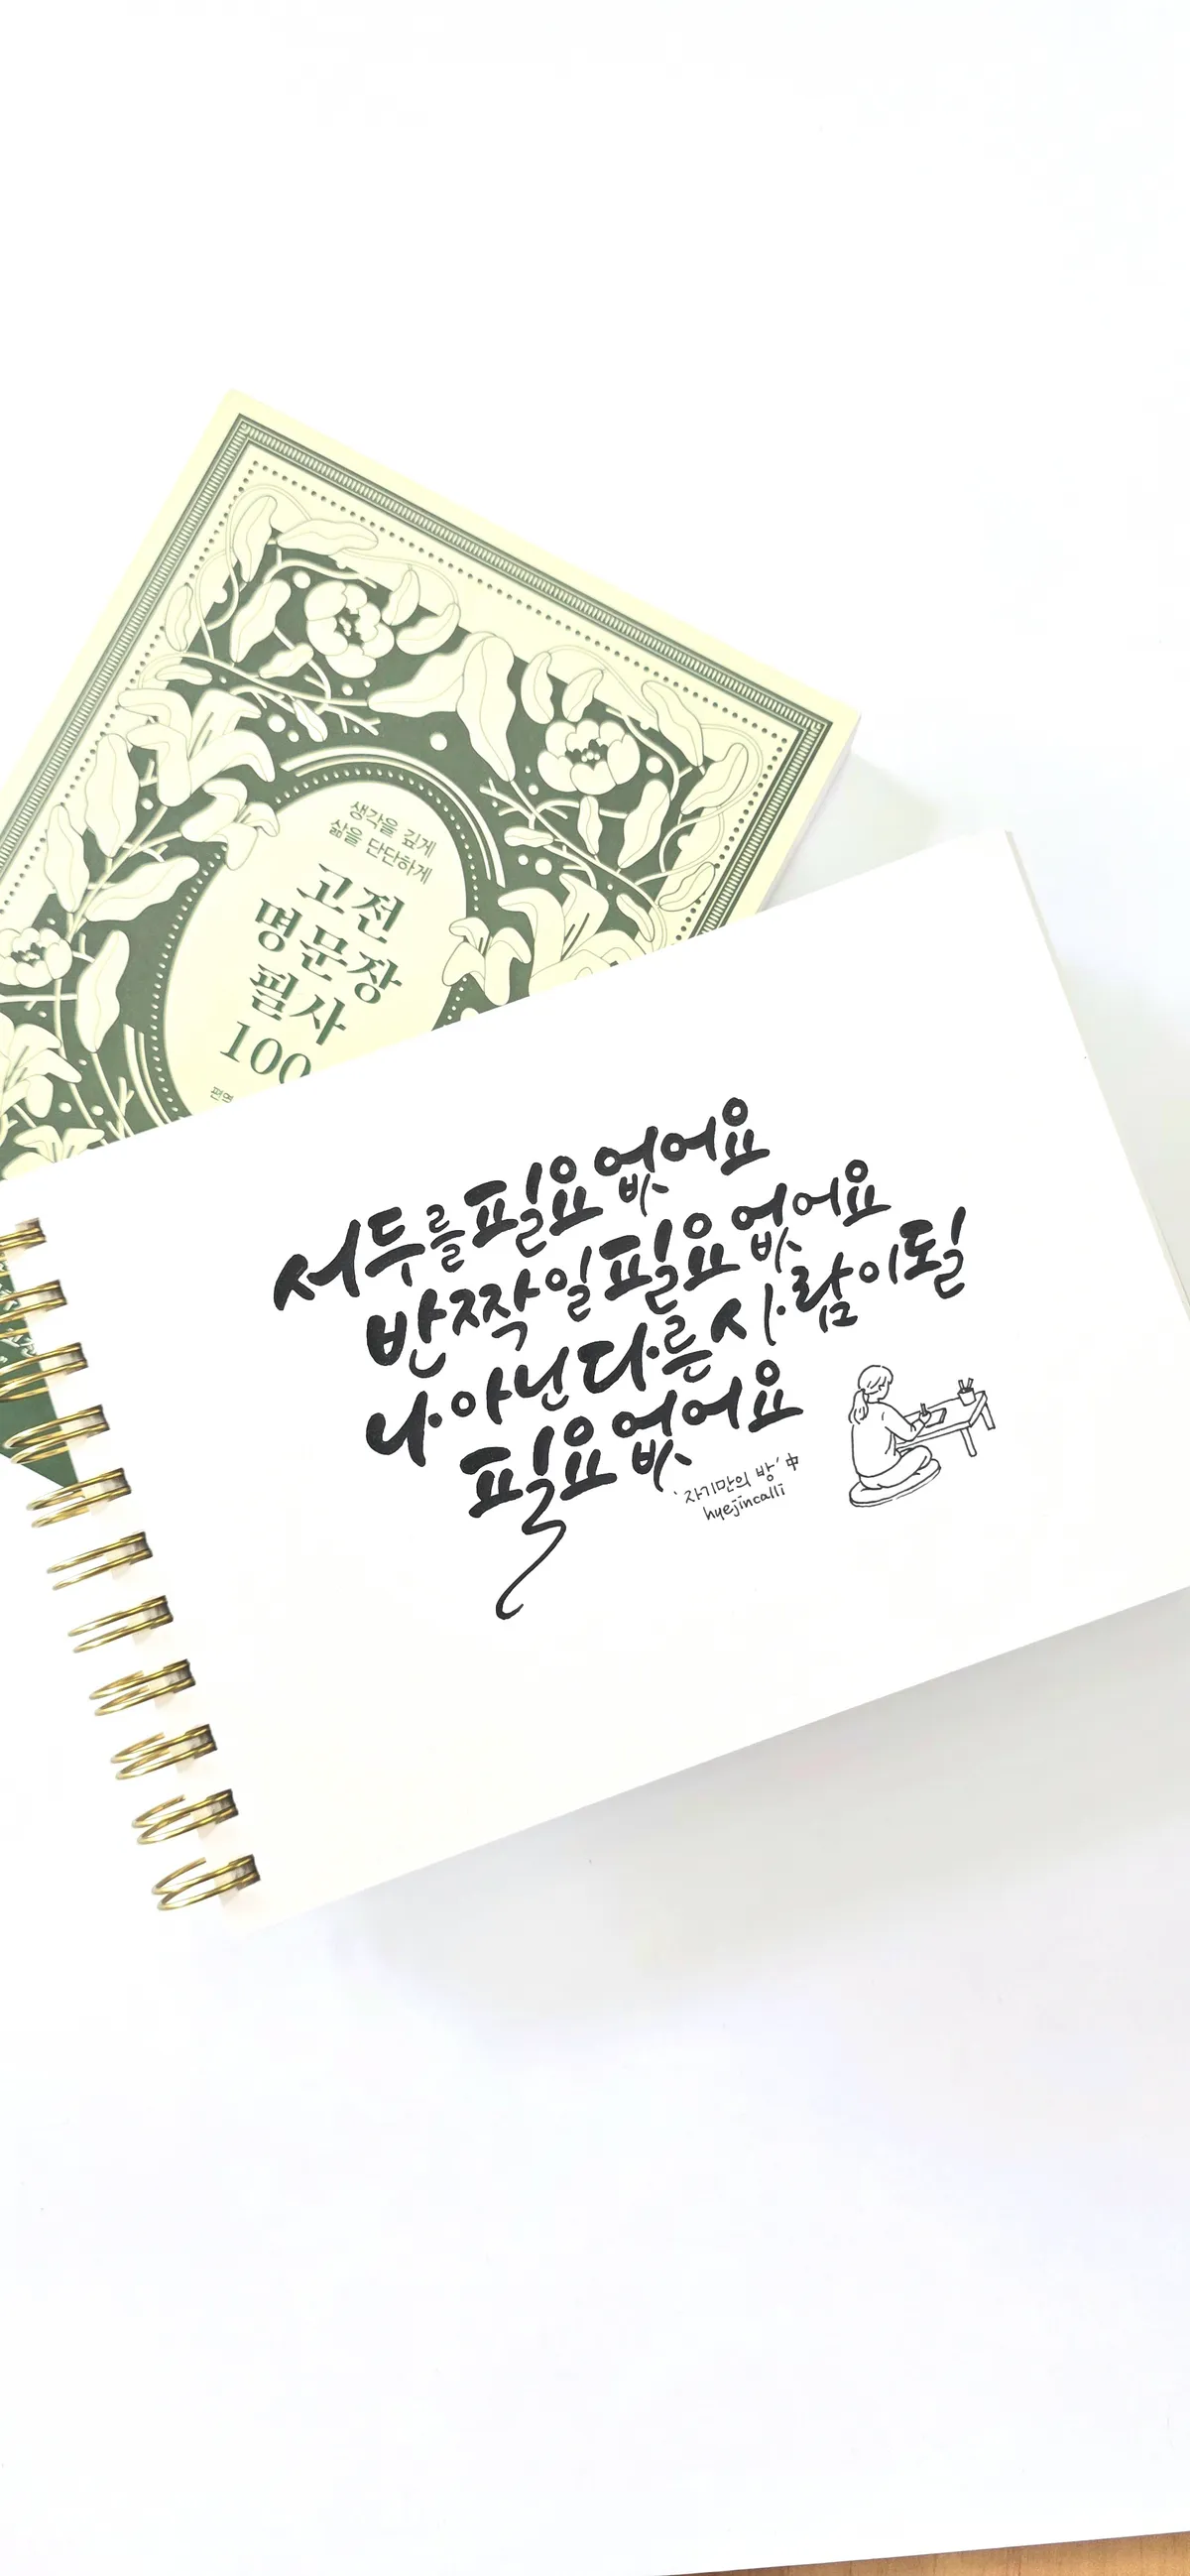 생각을 깊게
삶을 단단하게
고전
명문장
필사
100
서두를 필요 없어요
반짝일 필요 없어요
나 아닌 다른 사람이 될
필요 없어요
'자기만의 방' 中
hyejincalli